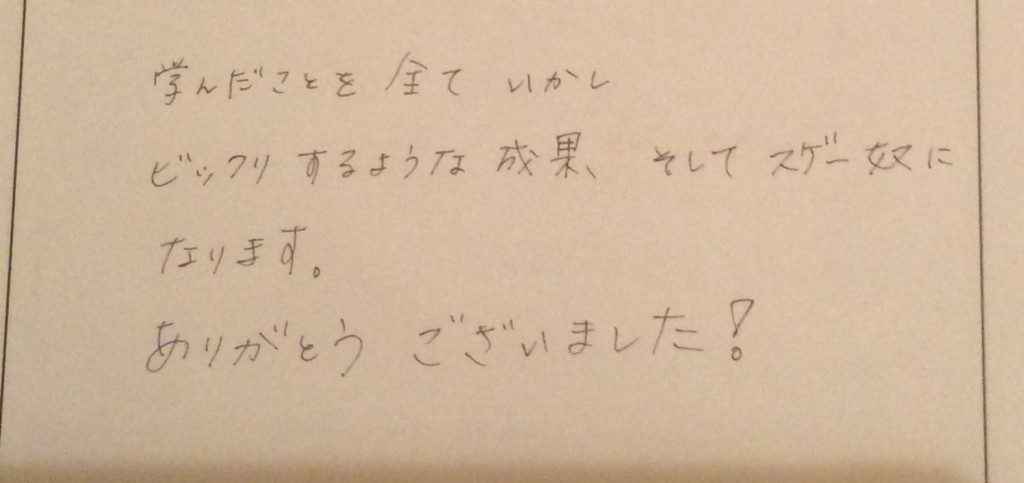 学んだことを 全て いかし
ビックリ するような 成果、 そして スゲー奴に
なります。
ありがとう ございました!